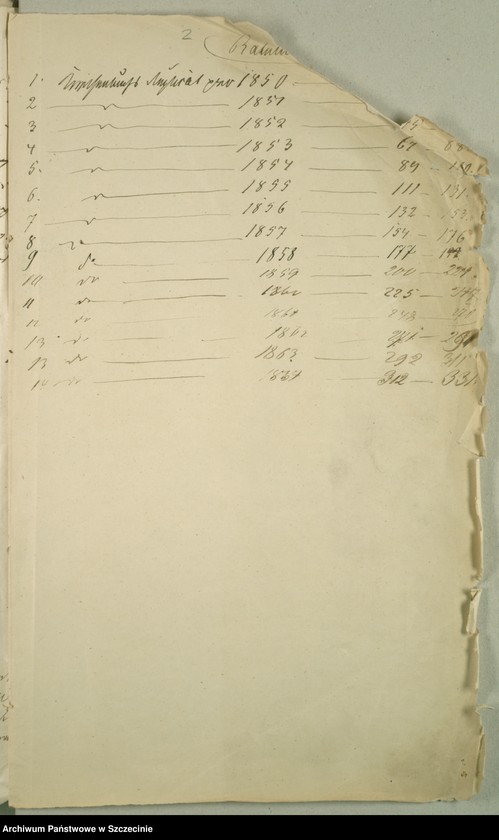 2
1. Kirchenbuchs Duplicat pro 1850
2 1851
3 1852
4 1853 67 - 88
5. 1854 89 - 110.
6. 1855 111 - 131
7 1856 132 - 153
8 1857 154 - 176
9 do 1858 177 -
10 do 1859 200 - 224
11 do 1860 225 -
12 do
13 do 1862 291
13 do 1863 292 311
do 312 - 331
Archiwum Państwowe w Szczecinie